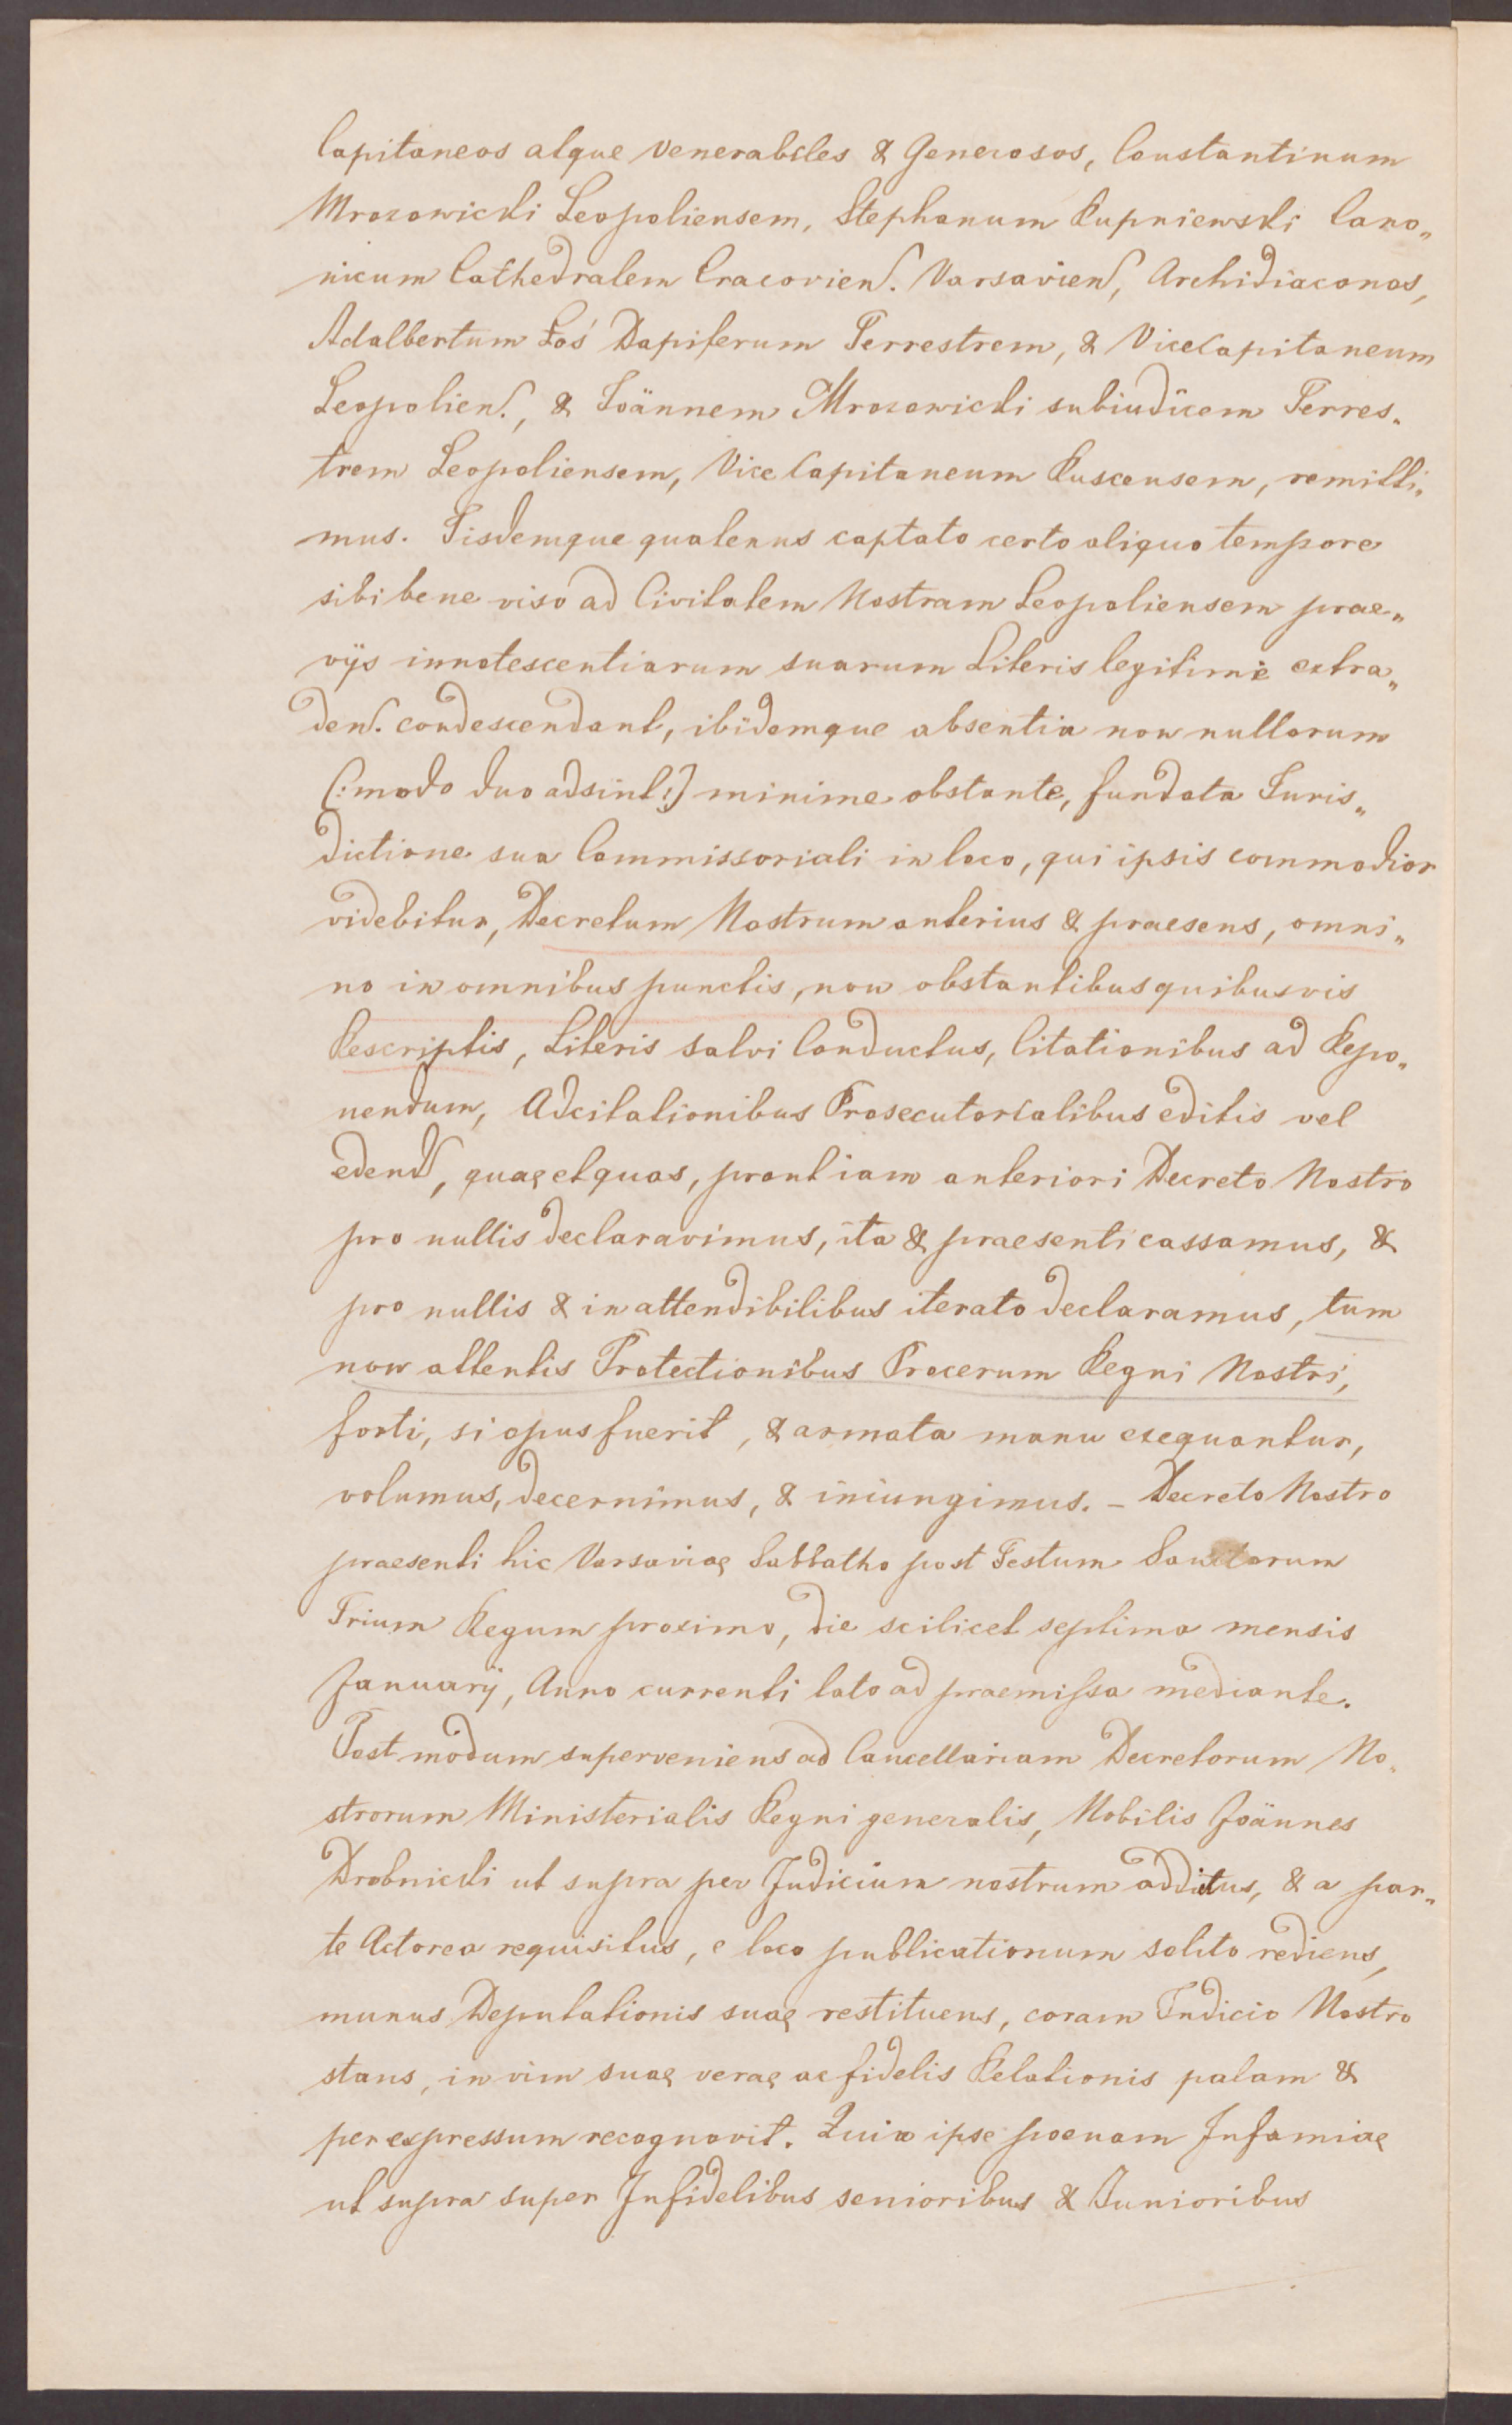 Capitaneos atque Venerabiles & Generosos, Constantinum
Mrozowicki Leopoliensem, Stephanum Rupniewski Cano„
nicum Cathedralem Cracovien. Varsavien, Archidiaconos,
Adalbertum Łoś Dapiferum Terrestrem, & ViceCapitaneum
Leopolien., & Ioännem Mrozowicki subiudicem Terres„
trem Leopoliensem, Vice Capitaneum Buscensem, remitti„
mus. Iisdemque quatenus captato certo aliquo tempore
sibi bene viso ad Civitatem Nostram Leopoliensem prae„
vijs innotescentiarum suarum Literis legitime extra„
den. condescendant, ibidemque absentia non nullorum
(:modo duo adsint:) minime obstante, fundata Iuris„
dictione sua Commissoriali in loco, qui ipsis commodior
videbitur, Decretum Nostrum anterius & praesens, omni„
no in omnibus punctis, non obstantibus quibusvis
Rescriptis, Literis Salvi Conductus, Citationibus ad Repo„
nendum, Adcitationibus Prosecutorialibus editis vel
edend, quae et quas, prout iam anteriori Decreto Nostro
pro nullis declaravimus, ita & praesenti cassamus, &
pro nullis & in attendibilibus iterato declaramus, tum
non attentis Protectionibus Procerum Regni Nostri,
forti, si opus fuerit, & armata manu exequantur,
volumus, decernimus, & iniungimus. – Decreto Nostro
praesenti hic Varsaviae Sabbatho post Festum Sanctorum
Trium Regum proximo, die scilicet septima mensis
Januarij, Anno currenti lato ad praemissa mediante.
Post modum superveniens ad Cancellariam Decretorum No„
strorum Ministerialis Regni generalis, Nobilis Joännes
Drobnicki ut supra per Judicium nostrum additus, & a par„
te Actorea requisitus, e loco publicationum solito rediens,
munus Deputationis suae restituens, coram Iudicio Nostro
stans, in vim suae verae ac fidelis Relationis palam &
per expressum recognovit. Quia ipse poenam Infamiae
ut supra super Infidelibus senioribus & Iunioribus